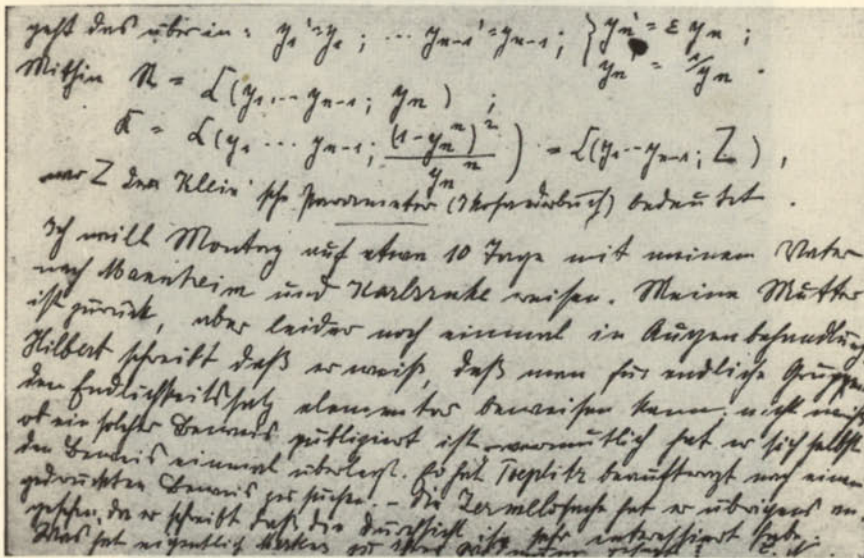 geht das über in: y₁' = y₁; ... yₙ₋₁' = yₙ₋₁; { yₙ' = ε yₙ; yₙ' = 1/yₙ.
Mithin K = L(y₁ ... yₙ₋₁; yₙ);
K = L(y₁ ... yₙ₋₁; (1-yₙⁿ)²/yₙⁿ) = L(y₁ ... yₙ₋₁; Z),
wo Z den Klein'sche Parameter (Ikosaederbuch) bedeutet.
Ich will Montag auf etwa 10 Tage mit meinem Vater
nach Mannheim und Karlsruhe reisen. Meine Mutter
ist zurück, aber leider noch einmal in Augenbehandlung
Hilbert schreibt daß er weiß, daß man für endliche Gruppen
den Endlichkeitssatz elementar beweisen kann, nicht weiß
ob ein solcher Beweis publiziert ist vermutlich hat er sich selbst
den Beweis einmal überlegt. Er hat Toeplitz beauftragt nach einem
gedruckten Beweis zu suchen. – Die Zermelosache hat er übrigens an-
gesehen, da er schreibt daß die Durchsicht ihn sehr interessiert habe.
Was hat eigentlich